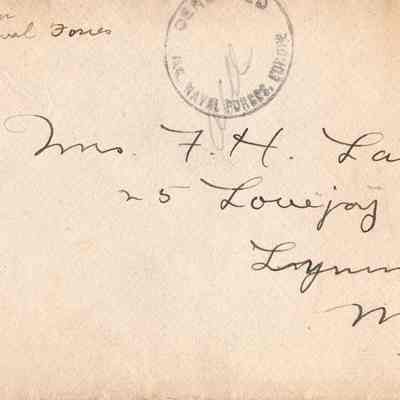 val Forces
CENSORED
U.S. NAVAL FORCES, EUROPE
Mrs. F. H. La
25 Lovejoy
Lynn
M